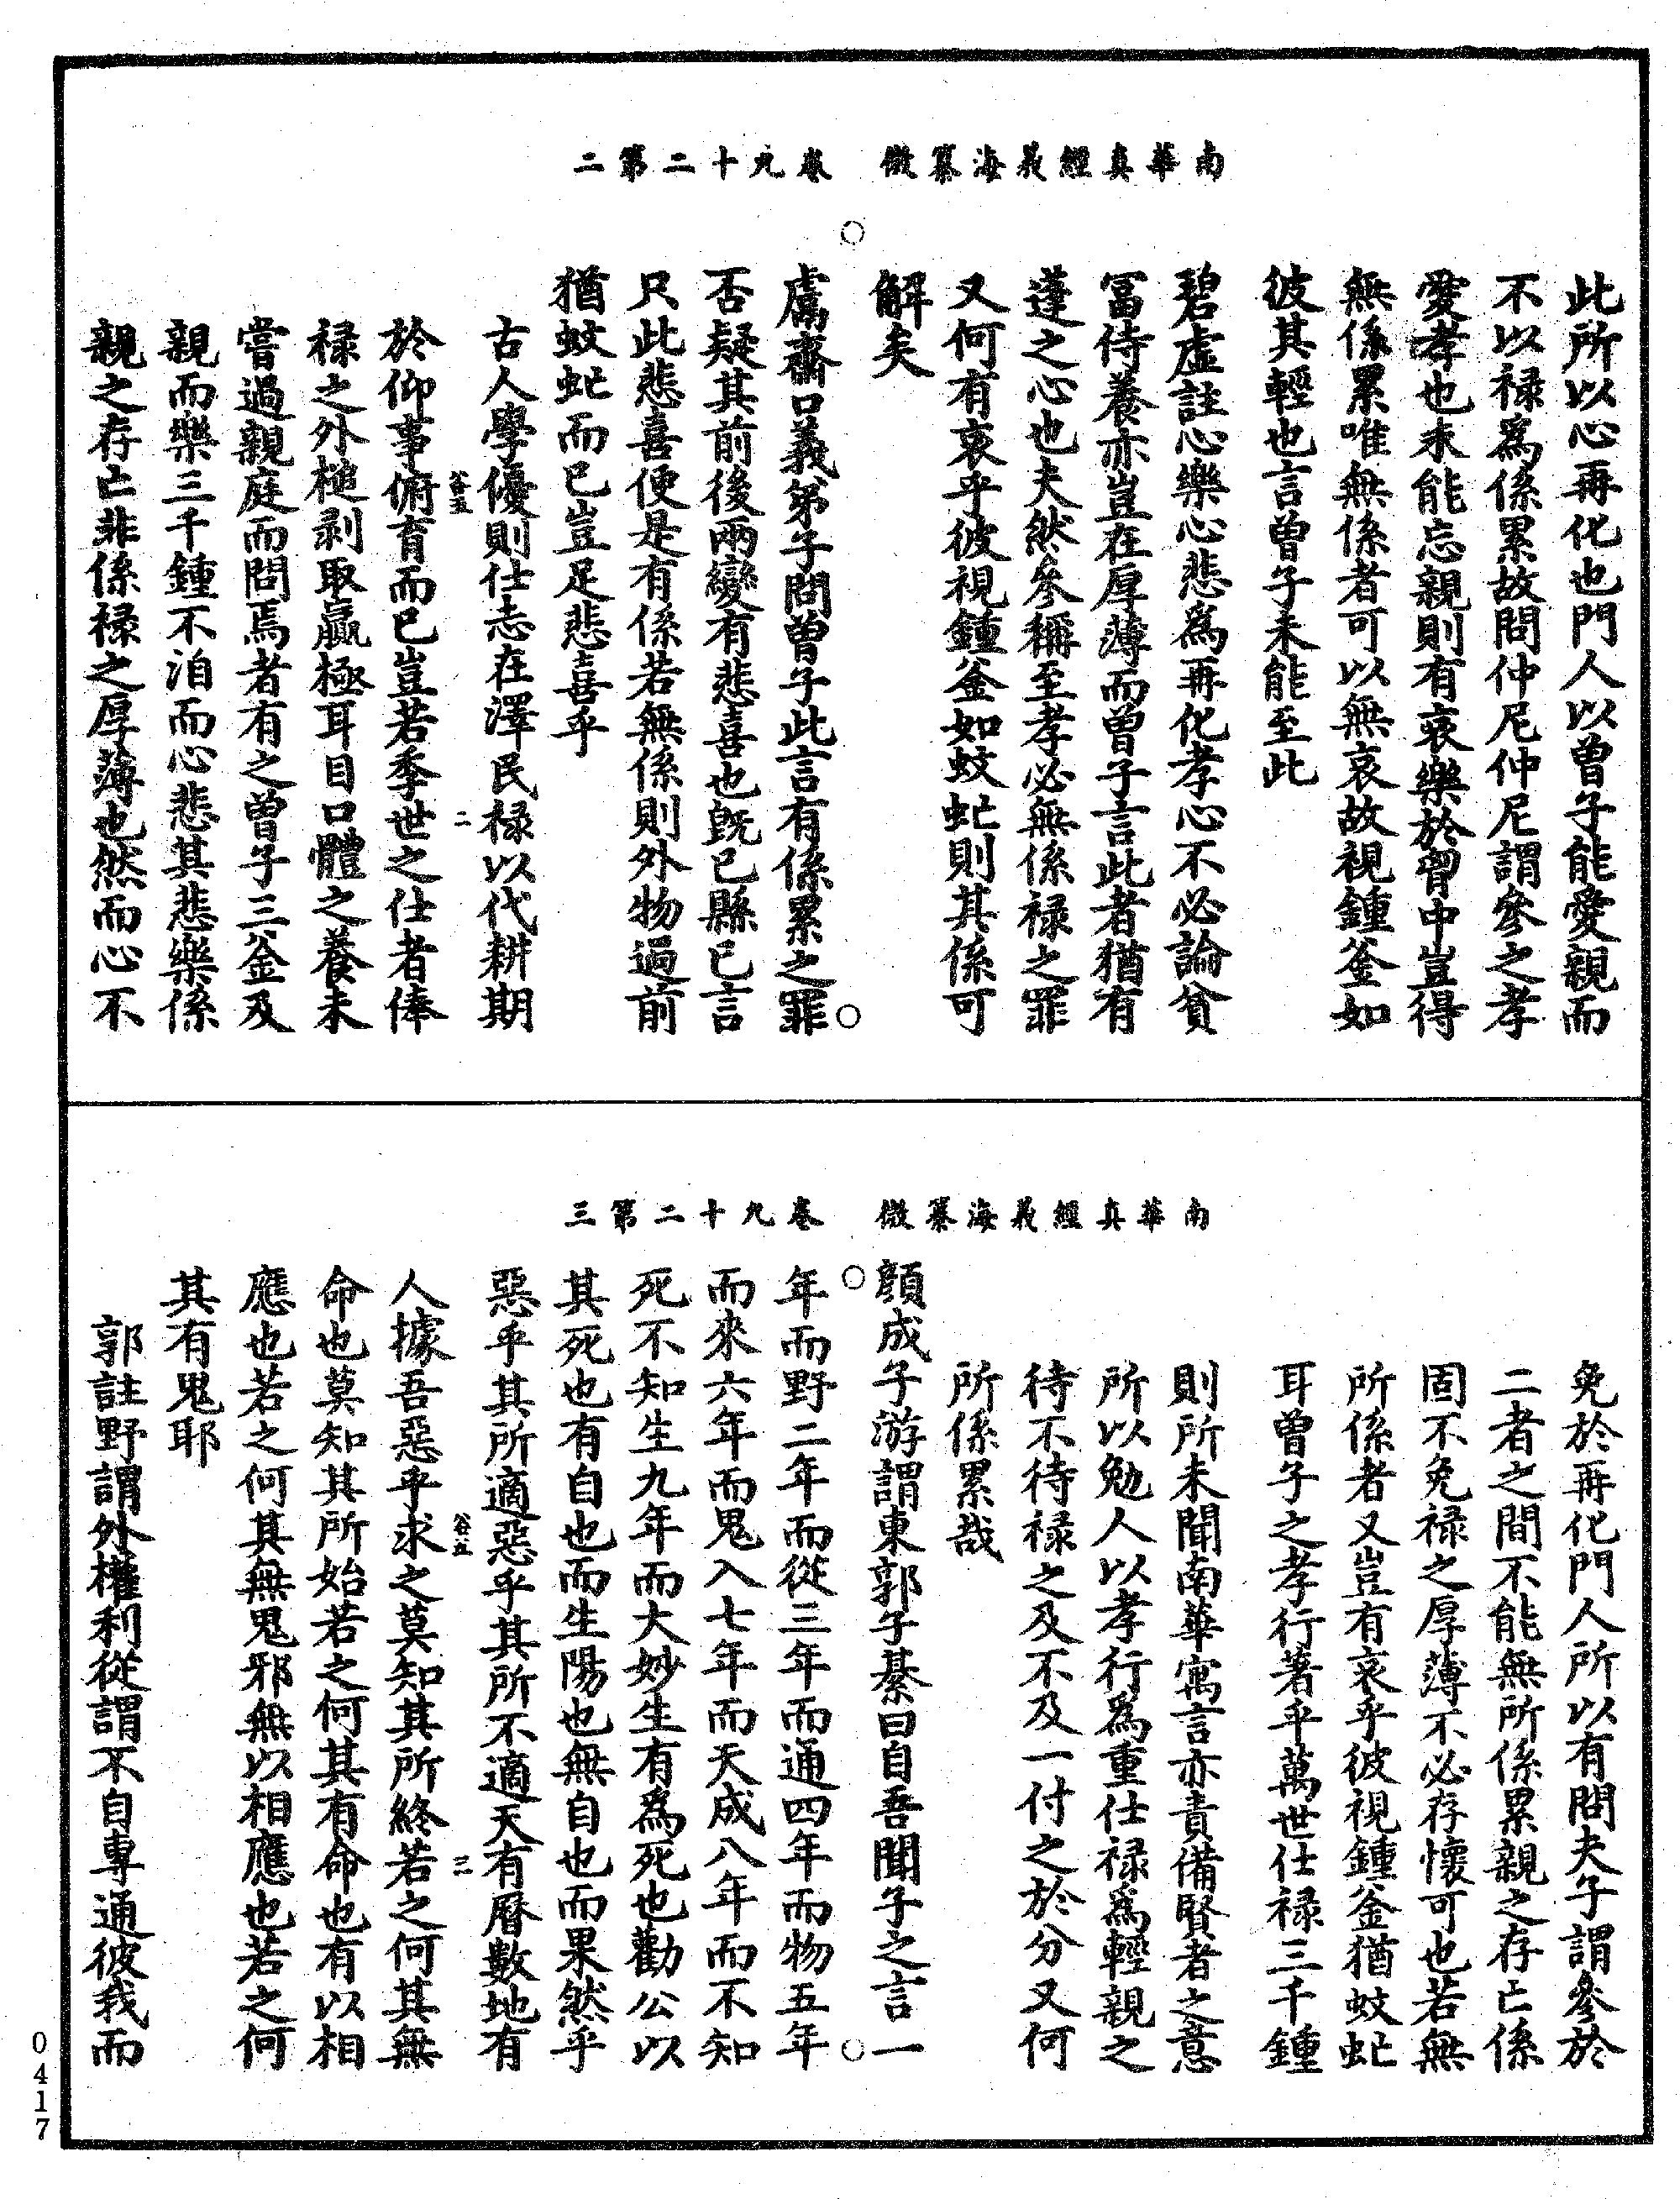 南華真經義海纂微　卷九十二第二
此所以心再化也門人以曾子能愛親而
不以祿爲係累故問仲尼仲尼謂參之孝
愛孝也未能忘親則有哀樂於胷中豈得
無係累唯無係者可以無哀故視鍾釜如
彼其輕也言曾子未能至此
碧虛註心樂心悲爲再化孝心不必論貧
富侍養亦豈在厚薄而曾子言此者猶有
蓬之心也夫然參稱至孝必無係祿之罪
又何有哀乎彼視鍾釜如蚊虻則其係可
解矣
鬳齋口義弟子問曾子此言有係累之罪
否疑其前後兩變有悲喜也旣已縣已言
只此悲喜便是有係若無係則外物過前
猶蚊虻而已豈足悲喜乎
古人學優則仕志在澤民祿以代耕期
谷五　二
於仰事俯育而已豈若季世之仕者俸
祿之外槌剥取贏極耳目口體之養未
嘗過親庭而問焉者有之曾子三釜及
親而樂三千鍾不洎而心悲其悲樂係
親之存亡非係祿之厚薄也然而心不
南華真經義海纂微　卷九十二第三
免於再化門人所以有問夫子謂參於
二者之間不能無所係累親之存亡係
固不免祿之厚薄不必存懷可也若無
所係者又豈有哀乎彼視鍾釜猶蚊虻
耳曾子之孝行著乎萬世仕祿三千鍾
則所未聞南華寓言亦責備賢者之意
所以勉人以孝行爲重仕祿爲輕親之
待不待祿之及不及一付之於分又何
所係累哉
顏成子游謂東郭子綦曰自吾聞子之言一
年而野二年而從三年而通四年而物五年
而來六年而鬼入七年而天成八年而不知
死不知生九年而大妙生有爲死也勸公以
其死也有自也而生陽也無自也而果然乎
惡乎其所適惡乎其所不適天有曆數地有
谷五　三
人據吾惡乎求之莫知其所終若之何其無
命也莫知其所始若之何其有命也有以相
應也若之何其無鬼邪無以相應也若之何
其有鬼耶
郭註野謂外權利從謂不自專通彼我而
0417